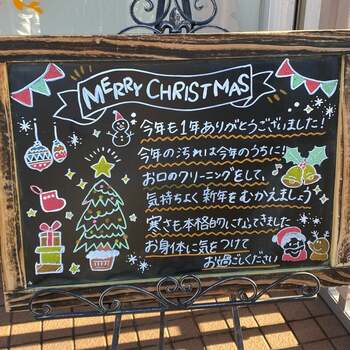 MERRY CHRISTMAS
今年も1年ありがとうございました!
今年の汚れは今年のうちに!
お口のクリーニングをして、
気持ちよく新年をむかえましょう
寒さも本格的になってきました
お身体に気をつけて
お過ごしください